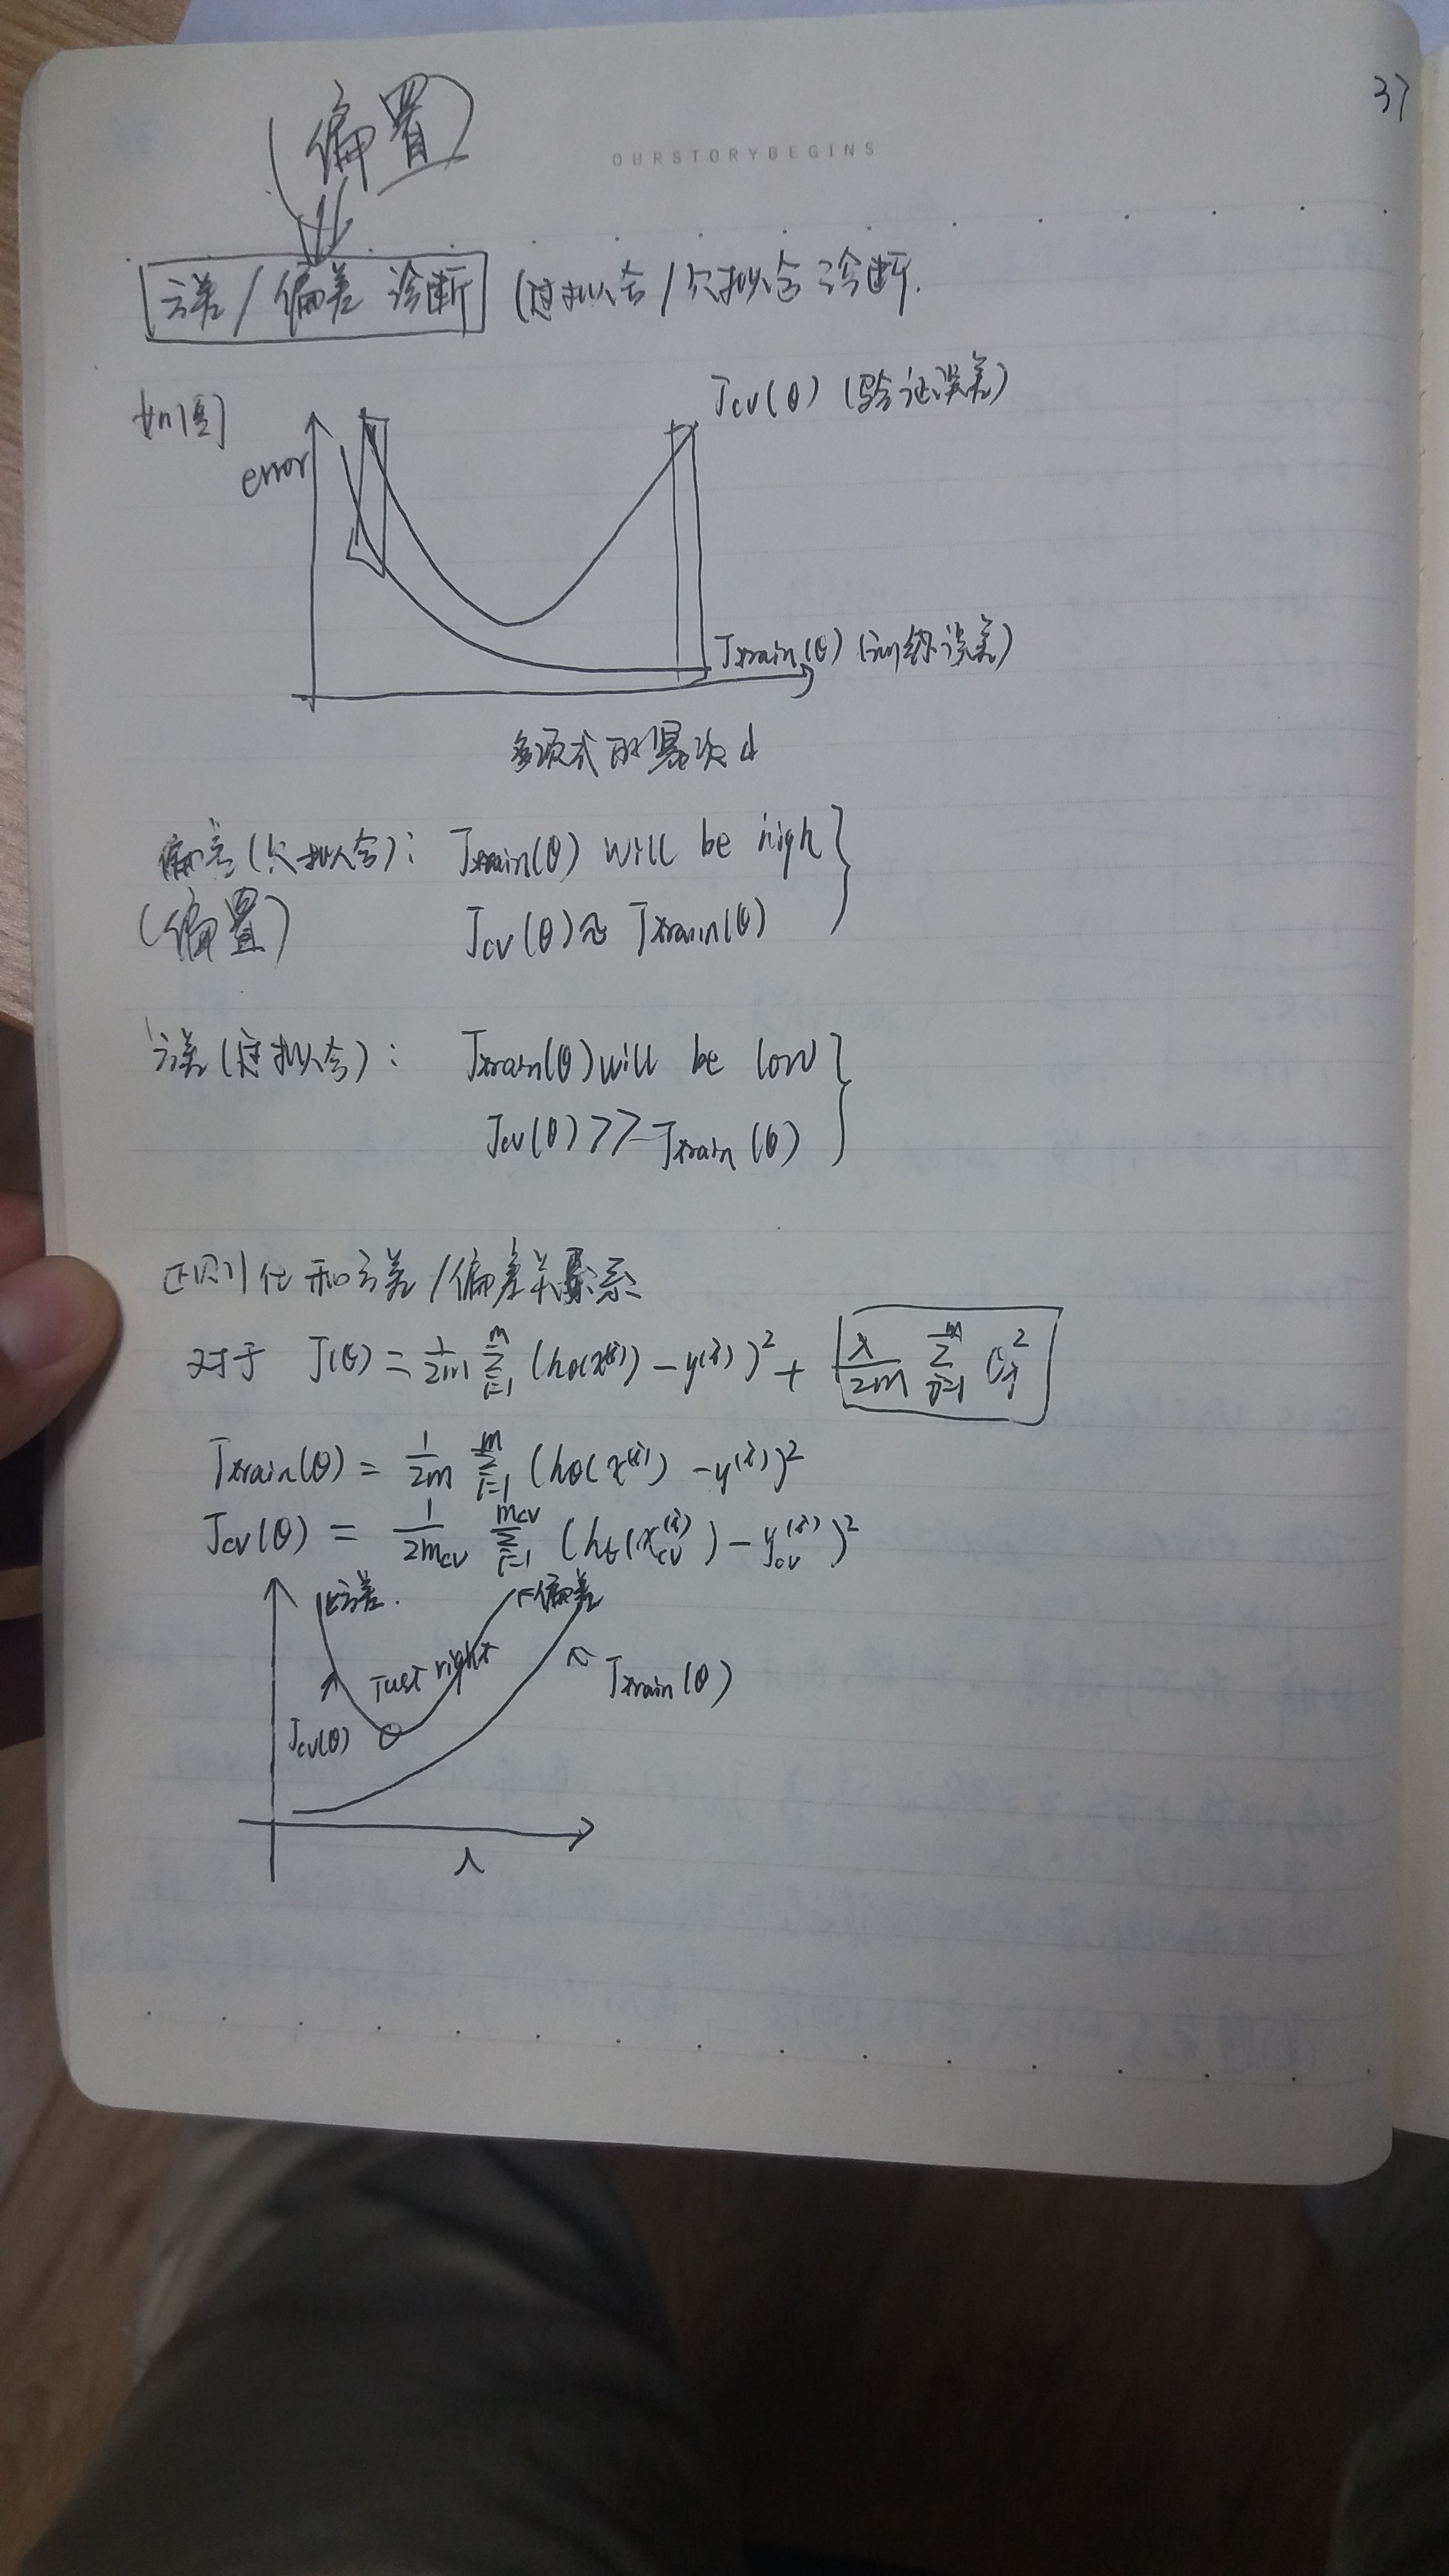 37
(偏置)
OURSTORYBEGINS
方差/偏差 诊断 (过拟合/欠拟合诊断.
如图
Jcv(θ) (验证误差)
error
Jtrain(θ) (训练误差)
多项式的幂次d
偏差(欠拟合): Jtrain(θ) will be high
(偏置) Jcv(θ)≈ Jtrain(θ)
方差(过拟合): Jtrain(θ) will be low
Jcv(θ) >> Jtrain(θ)
正则化和方差/偏差关系
对于 J(θ) = 1/2m Σ_{i=1}^{m} (hθ(x^(i)) - y^(i))² + λ/2m Σ_{j=1}^{m} θj²
Jtrain(θ) = 1/2m Σ_{i=1}^{m} (hθ(x^(i)) - y^(i))²
Jcv(θ) = 1/2mcv Σ_{i=1}^{mcv} (hθ(xcv^(i)) - ycv^(i))²
方差. 偏差
Just right
Jtrain(θ)
Jcv(θ)
λ